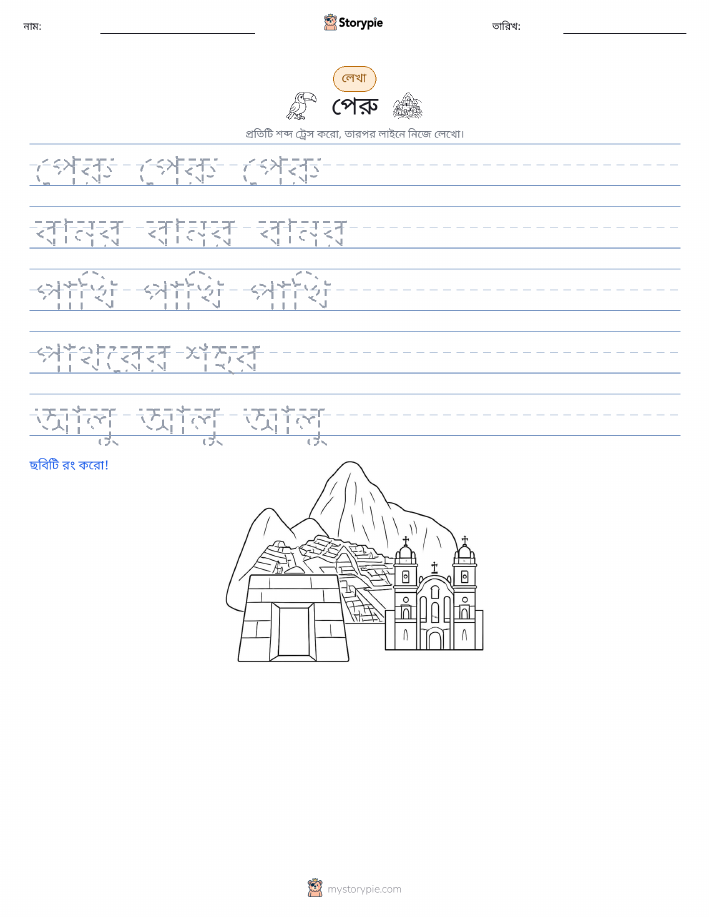 নাম: Storypie তারিখ:
লেখা
পেরু
প্রতিটি শব্দ ট্রেস করো, তারপর লাইনে নিজে লেখো।
পেরু পেরু পেরু
বানর বানর বানর
পাখি পাখি পাখি
পাথরের শহর
আলু আলু আলু
ছবিটি রং করো!
mystorypie.com